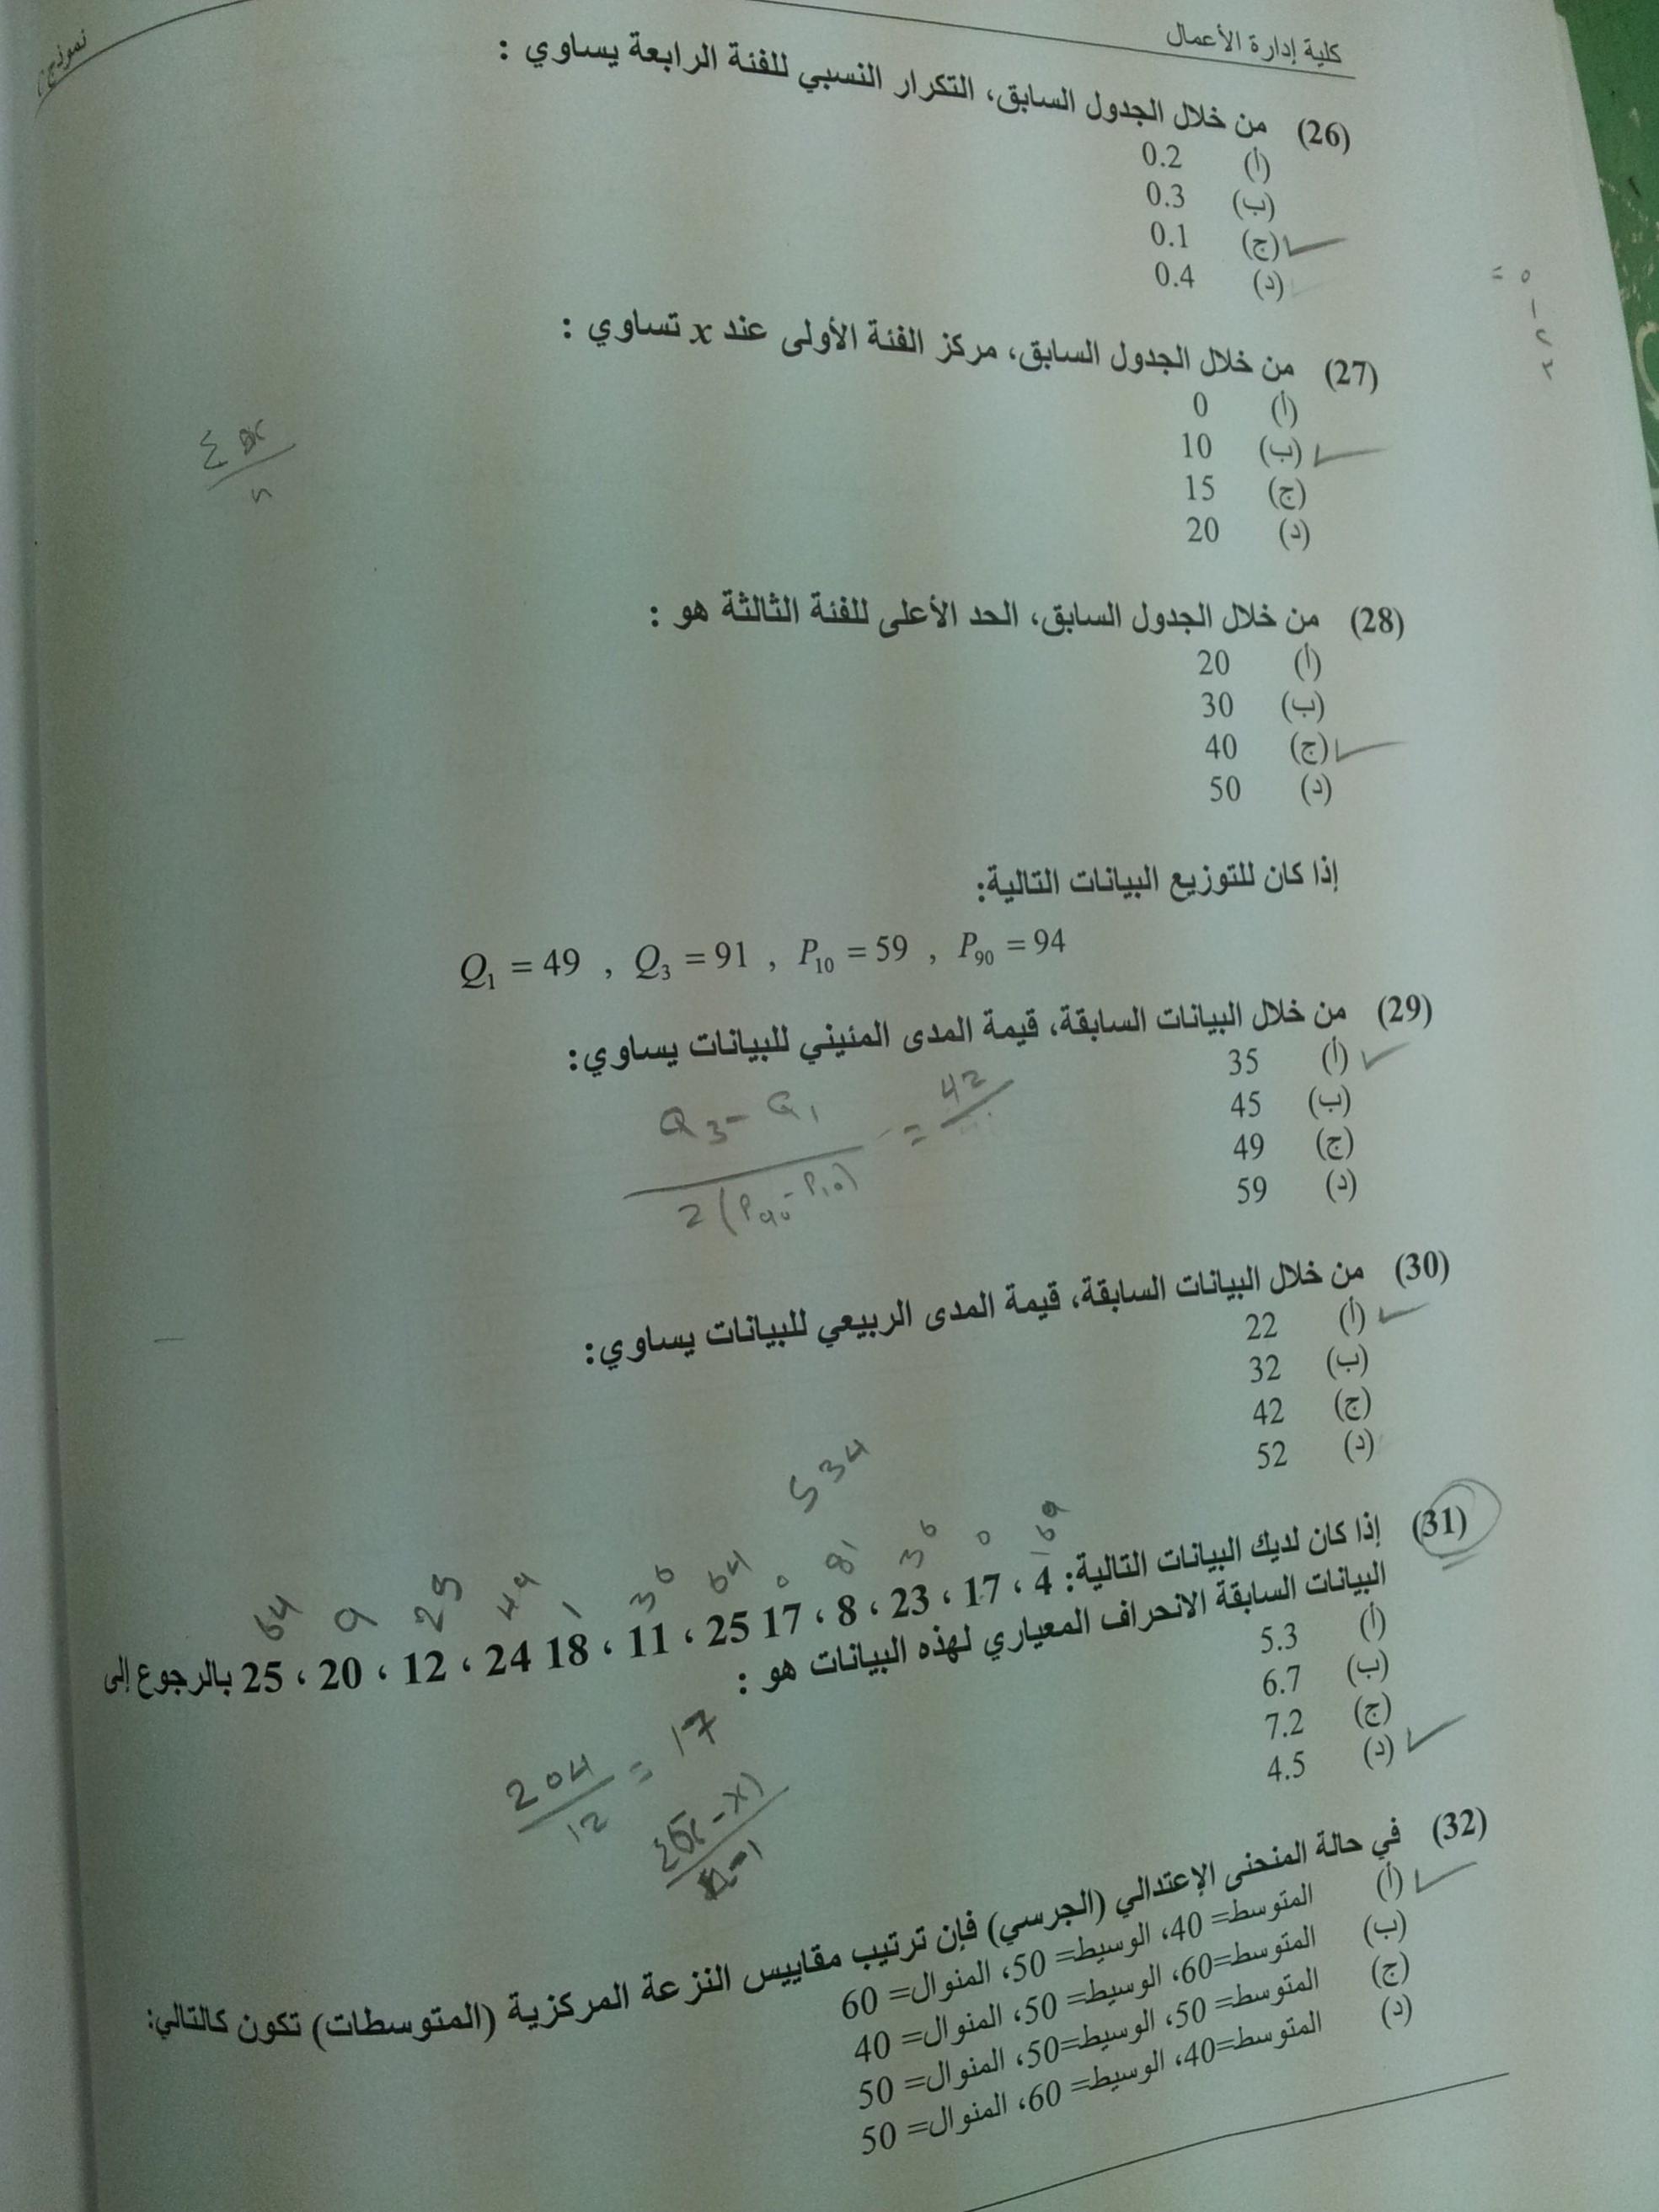 كلية إدارة الأعمال
نموذج
(26) من خلال الجدول السابق، التكرار النسبي للفئة الرابعة يساوي :
(أ) 0.2
(ب) 0.3
(ج) 0.1
(د) 0.4
(27) من خلال الجدول السابق، مركز الفئة الأولى عند x تساوي :
(أ) 0
(ب) 10
(ج) 15
(د) 20
(28) من خلال الجدول السابق، الحد الأعلى للفئة الثالثة هو :
(أ) 20
(ب) 30
(ج) 40
(د) 50
إذا كان للتوزيع البيانات التالية:
Q1 = 49 , Q3 = 91 , P10 = 59 , P90 = 94
(29) من خلال البيانات السابقة، قيمة المدى المئيني للبيانات يساوي:
(أ) 35
(ب) 45
(ج) 49
(د) 59
Q3 - Q1 = 42
2 (P90 - P10)
(30) من خلال البيانات السابقة، قيمة المدى الربيعي للبيانات يساوي:
(أ) 22
(ب) 32
(ج) 42
(د) 52
534
64 9 25 49 1 36 64 0 81 36 0 169
(31) إذا كان لديك البيانات التالية: 4 ، 17 ، 23 ، 8 ، 17 25 ، 11 ، 18 24 ، 12 ، 20 ، 25 بالرجوع إلى
البيانات السابقة الانحراف المعياري لهذه البيانات هو :
(أ) 5.3
(ب) 6.7
(ج) 7.2
(د) 4.5
204 = 17
12
n-1
(32) في حالة المنحنى الإعتدالي (الجرسي) فإن ترتيب مقاييس النزعة المركزية (المتوسطات) تكون كالتالي:
(أ) المتوسط= 40، الوسيط= 50، المنوال= 60
(ب) المتوسط=60، الوسيط= 50، المنوال= 40
(ج) المتوسط= 50، الوسيط=50، المنوال= 50
(د) المتوسط=40، الوسيط= 60، المنوال= 50